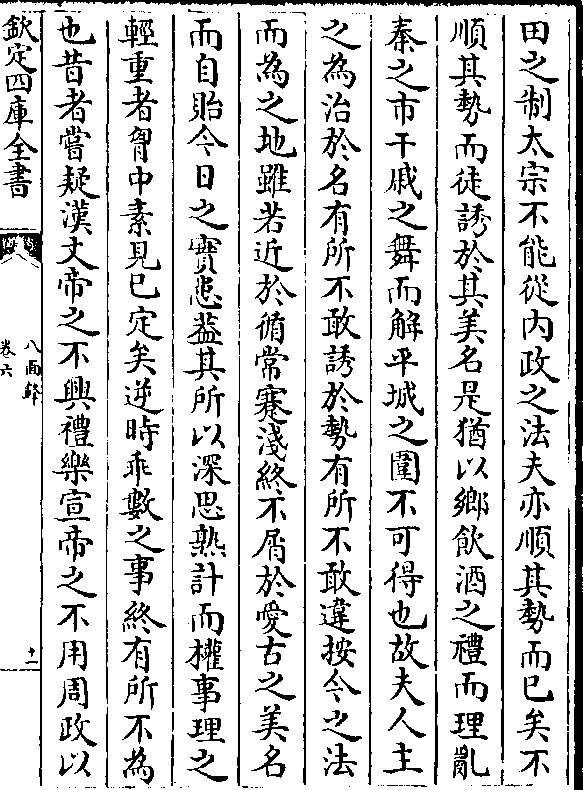 田之制太宗不能從内政之法夫亦順其勢而已矣不
順其勢而徒誘於其美名是猶以鄉飲酒之禮而理亂
秦之市干戚之舞而解平城之圍不可得也故夫人主
之為治於名有所不敢誘於勢有所不敢違按今之法
而為之地雖若近於循常蹇淺終不屑於愛古之美名
而自貽今日之實患葢其所以深思熟計而權事理之
輕重者胷中素見已定矣逆時乖數之事終有所不為
也昔者嘗疑漢文帝之不興禮樂宣帝之不用周政以
欽定四庫全書
八面鋒
卷六
十二